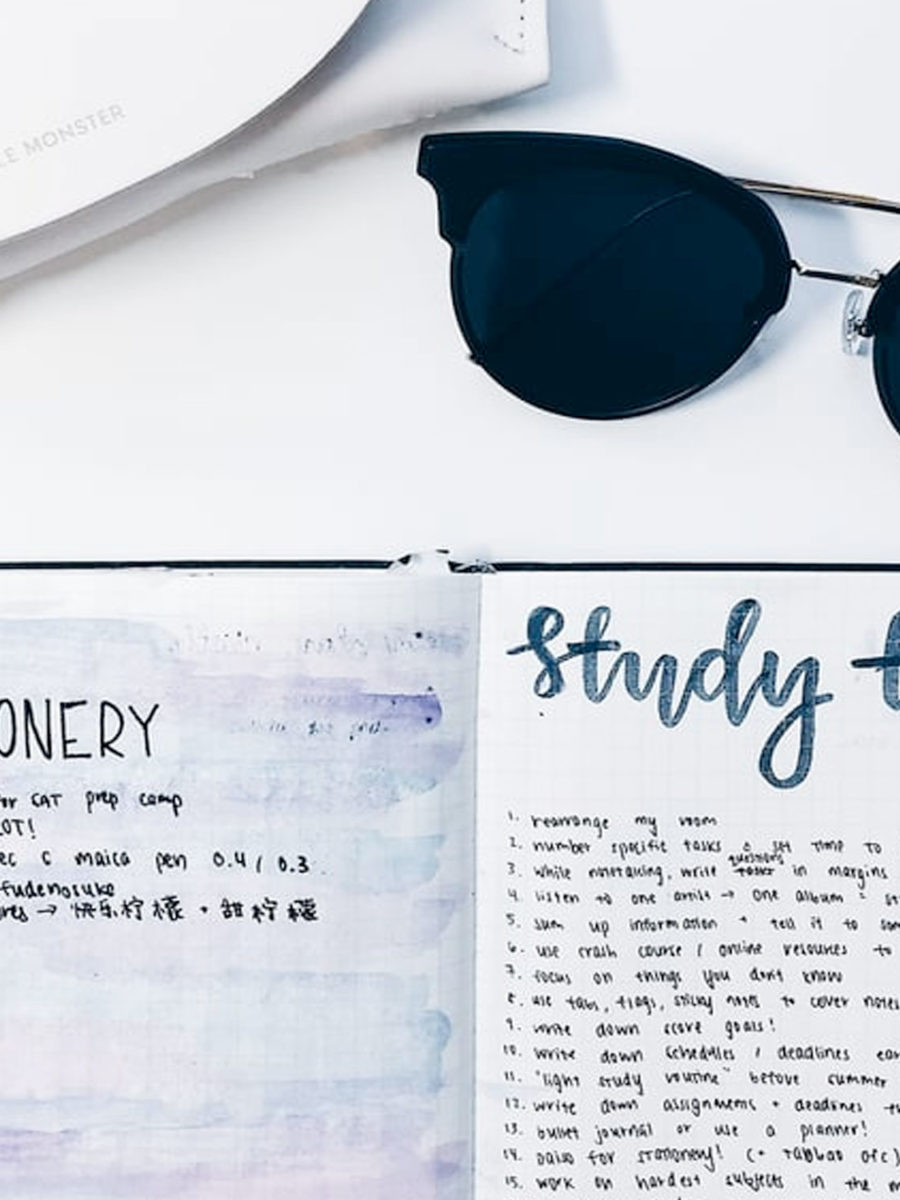 LE MONSTER
ONERY
for CAT prep camp
LOT!
ec c maica pen 0.4 / 0.3
fudenosuke
res → 快乐柠檬 + 甜柠檬
study t
1. rearrange my room
2. number specific tasks & set time to
questions
3. while notetaking, write tasks in margins
4. listen to one artist → one album = st
5. sum up information + tell it to som
6. use crash course / online resources to
7. focus on things you don't know
8. use tabs, flags, sticky notes to cover notes
9. write down score goals!
10. write down schedules / deadlines ear
11. "light study routine" before summer
12. write down assignments + deadlines
13. bullet journal or use a planner!
14. daiso for stationery! (+ taobao ofc)
15. work on hardest subjects in the m